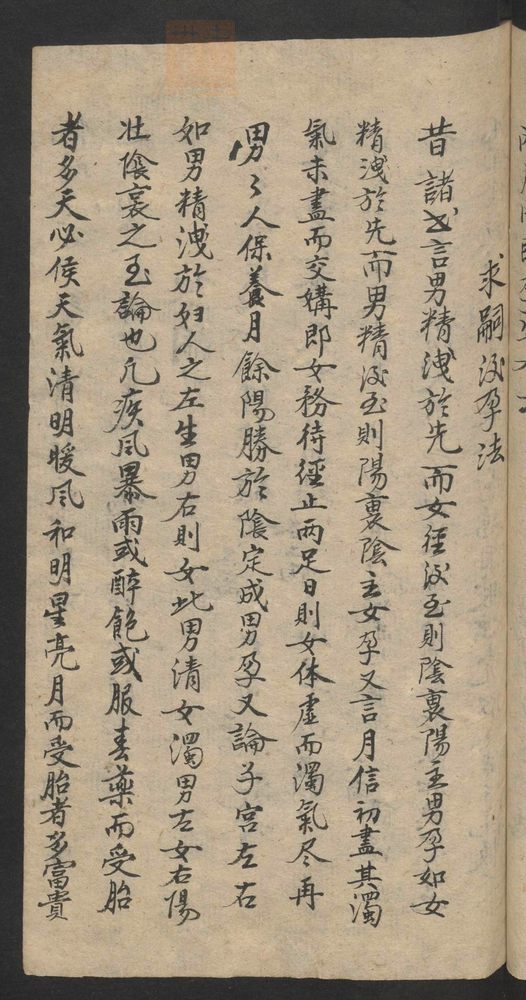 求嗣後孕法
昔諸書言男精洩於先而女經後至則陰裏陽主男孕如女
精洩於先而男精後至則陽裏陰主女孕又言月信初盡其濁
氣未盡而交媾即女務待徑止两足日則女体虛而濁氣尽再
男々人保養月餘陽勝於陰定成男孕又論子宮左右
如男精洩於妇人之左生男右則女此男清女濁男左女右陽
壮陰衰之至論也凡疾风暴雨或醉飽或服春藥而受胎
者多夭必侯天氣清明暖风和明星亮月而受胎者多富貴